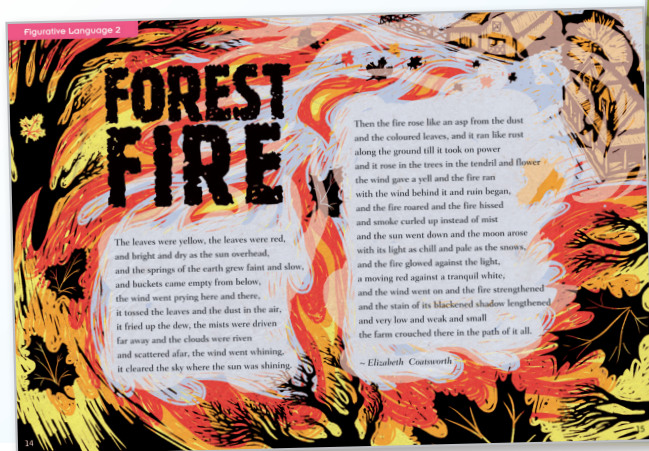 Figurative Language 2
FOREST
FIRE
The leaves were yellow, the leaves were red,
and bright and dry as the sun overhead,
and the springs of the earth grew faint and slow,
and buckets came empty from below,
the wind went prying here and there,
it tossed the leaves and the dust in the air,
it fried up the dew, the mists were driven
far away and the clouds were riven
and scattered afar, the wind went whining,
it cleared the sky where the sun was shining.
Then the fire rose like an asp from the dust
and the coloured leaves, and it ran like rust
along the ground till it took on power
and it rose in the trees in the tendril and flower
the wind gave a yell and the fire ran
with the wind behind it and ruin began,
and the fire roared and the fire hissed
and smoke curled up instead of mist
and the sun went down and the moon arose
with its light as chill and pale as the snows,
and the fire glowed against the light,
a moving red against a tranquil white,
and the wind went on and the fire strengthened
and the stain of its blackened shadow lengthened
and very low and weak and small
the farm crouched there in the path of it all.
~ Elizabeth Coatsworth
14
15